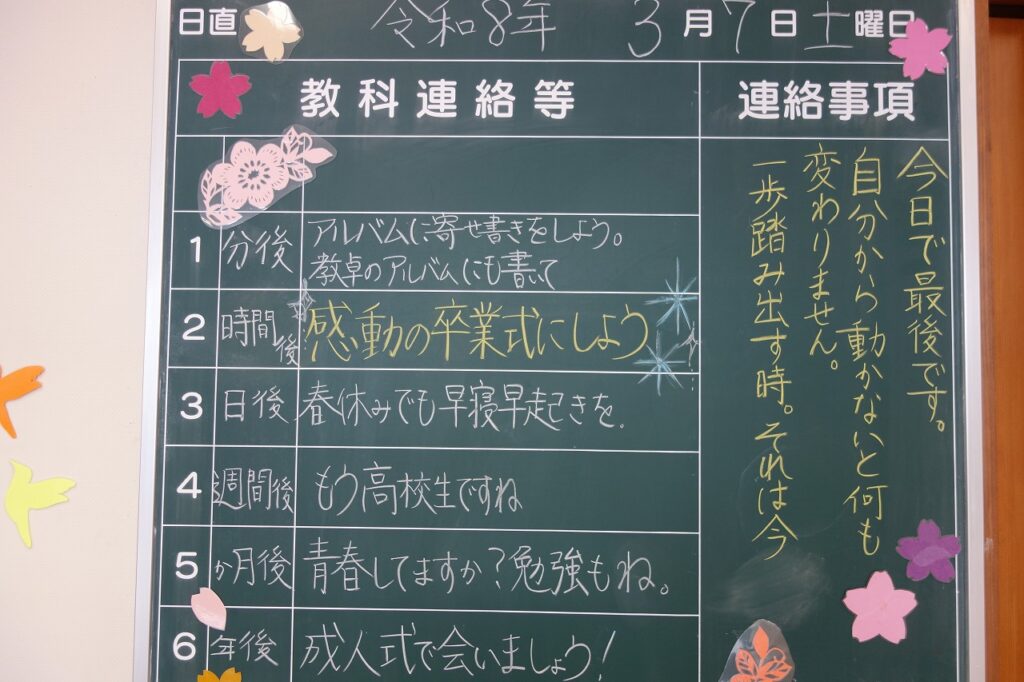 日直 令和8年 3月7日土曜日
教科連絡等
連絡事項
1 分後 アルバムに寄せ書きをしよう。
教卓のアルバムにも書いて
2 時間後 感動の卒業式にしよう
3 日後 春休みでも早寝早起きを.
4 週間後 もう高校生ですね
5 か月後 青春してますか?勉強もね。
6 年後 成人式で会いましょう!
今日で最後です。
自分から動かないと何も
変わりません。
一歩踏み出す時。それは今